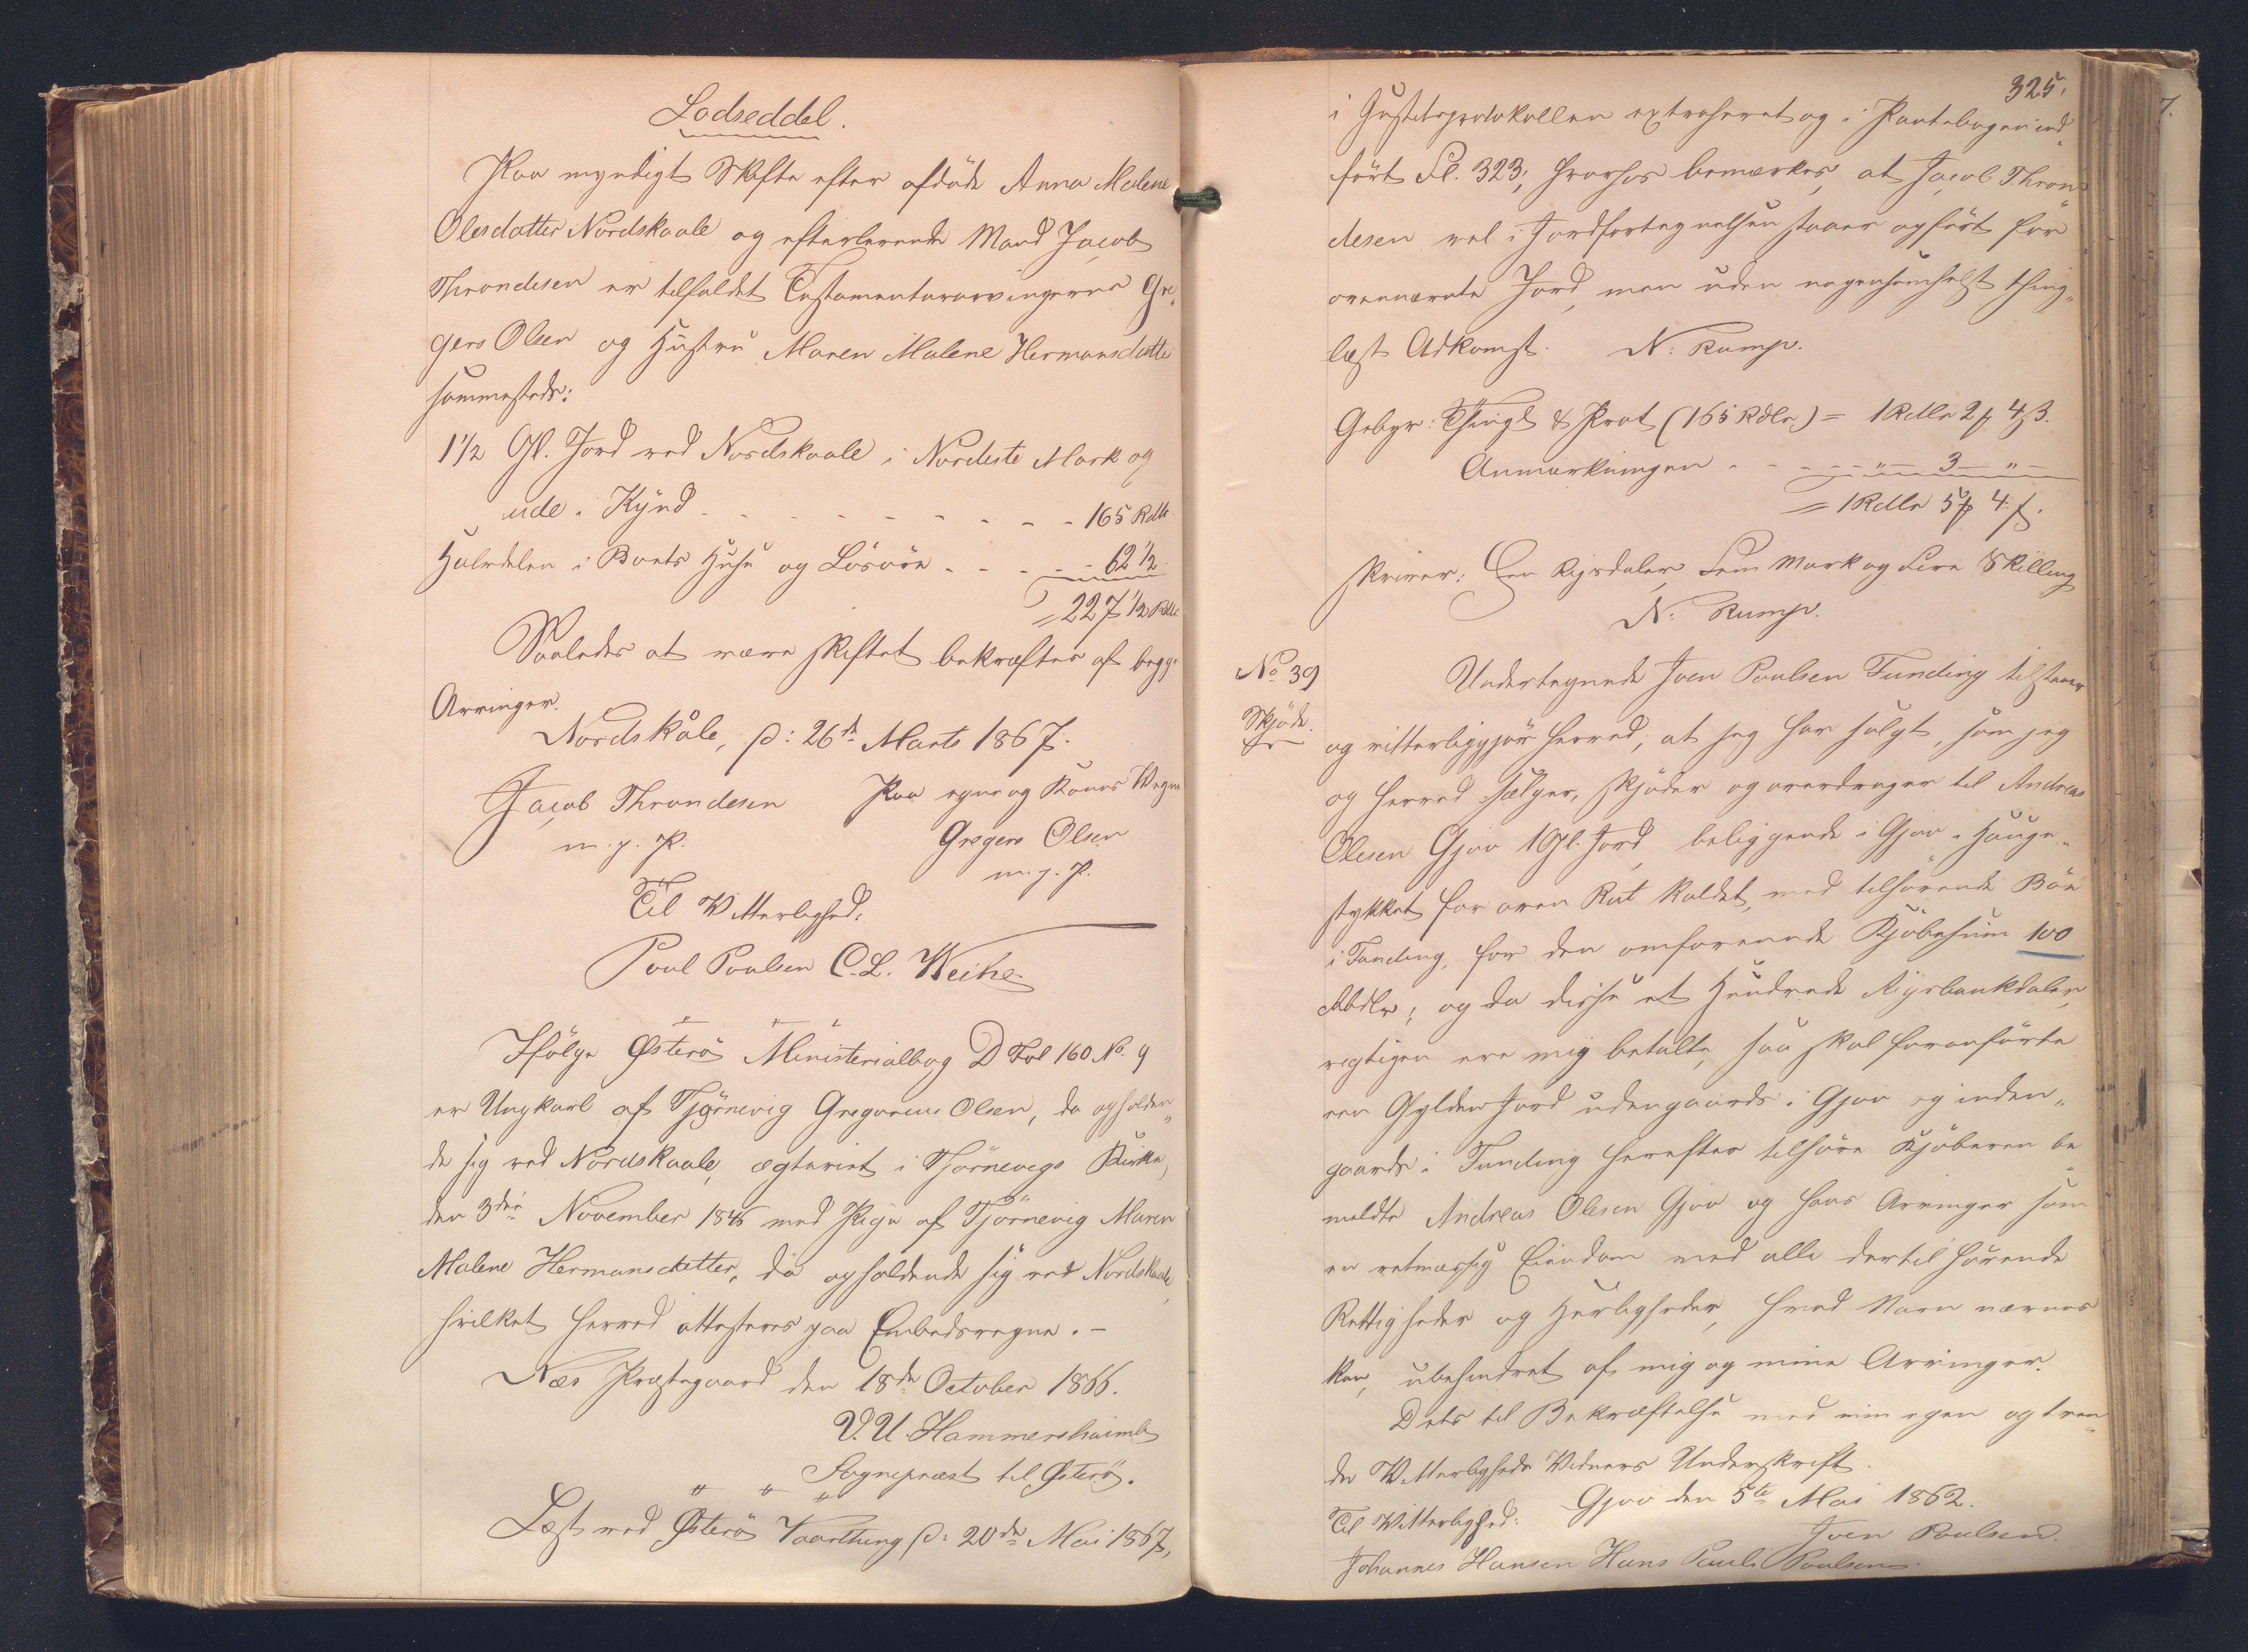 Lodseddel.
Paa myndigt Skifte efter afdøde Anna Malene
Olesdatter Nordskaale og efterlevende Mand Jacob
Throndesen er tilfaldet Testamentararvingerne Gre„
gers Olsen og Hustru Maren Malene Hermansdatter
sammesteds:
1 1/2 Gl. Jord ved Nordskaale i Nordeste Mark og
ude i Kÿnd - - - - - - - - - - 165 Rdlr.
Halvdelen i Boets Huse og Løsøre - - - - - 62 1/2.
= 227 1/2 Rdlr.
Saaledes at være skiftet bekræftes af begge
Arvinger.
Nordskåle, p: 26de Marts 1867.
Jacob Throndesen Paa egne og Kones Vegne
m. p. P. Gregers Olsen
m. p. P.
Til Vitterlighed:
Poul Poulsen C. L. Weihe
Ifølge Østerø Ministerialbog D Fol 160 No. 9
er Ungkarl af Tjørnevig Gregorius Olsen, da opholden„
de sig ved Nordskaale, ægteviet i Tjørnevigs Kirke,
den 3die November 1846 med Pige af Tjørnevig Maren
Malene Hermansdatter, da opholdende sig ved Nordskaale,
hvilket herved attesteres paa Embedsvegne. -
Næs Præstegaard den 18de October 1866.
V. U. Hammershaimb
Sognepræst til Østerø.
Læst ved Østerø Vaarthing p: 20de Mai 1867,
325.
i Justitsprotokollen extraheret og i Pantebogen ind„
ført Fl. 323; hvorhos bemærkes, at Jacob Thron„
desen vel i Jordfortegnelsen staaer opført for
ovennævnte Jord, men uden nogensomhelst thing„
læst Adkomst. N: Rump.
Gebyr: Thingl & Prot (165 Rdlr.) = 1 Rdlr 2 # 4 ß.
Anmærkningen - - - - „ - 3 - „ -
= 1 Rdlr 5 # 4 ß.
skriver: Een Rigsdaler, Fem Mark og Fire Skilling
N: Rump.
No 39
Skjøde.
Undertegnede Joen Poulsen Funding tilstaaer
og vitterliggjør herved, at jeg har solgt, som jeg
og herved sælger, skjøder og overdrager til Andreas
Olesen Gjov 1 Gl. Jord, beliggende i Gjov i Hauge„
stykket for oven Rat kaldet, med tilhørende Bøe
i Funding, for den omforenede Kjøbesum 100
Rbdlr; og da disse et Hundrede Rigsbankdaler,
rigtigen ere mig betalte, saa skal foranførte
een Gylden Jord udengaards i Gjov og inden„
gaards i Funding herefter tilhøre Kjøberen be„
meldte Andreas Olesen Gjov og hans Arvinger som
en retmæssig Eiendom med alle dertil hørende
Rettigheder og Herligheder, hvad Navn nævnes
kan, ubehindret af mig og mine Arvinger.
Dets til Bekræftelse med min egen og tven„
de Vitterligheds Vidners Underskrift.
Gjov den 5te Mai 1862.
Til Vitterlighed: Joen Poulsen.
Johannes Hansen Hans Pauli Poulsen.